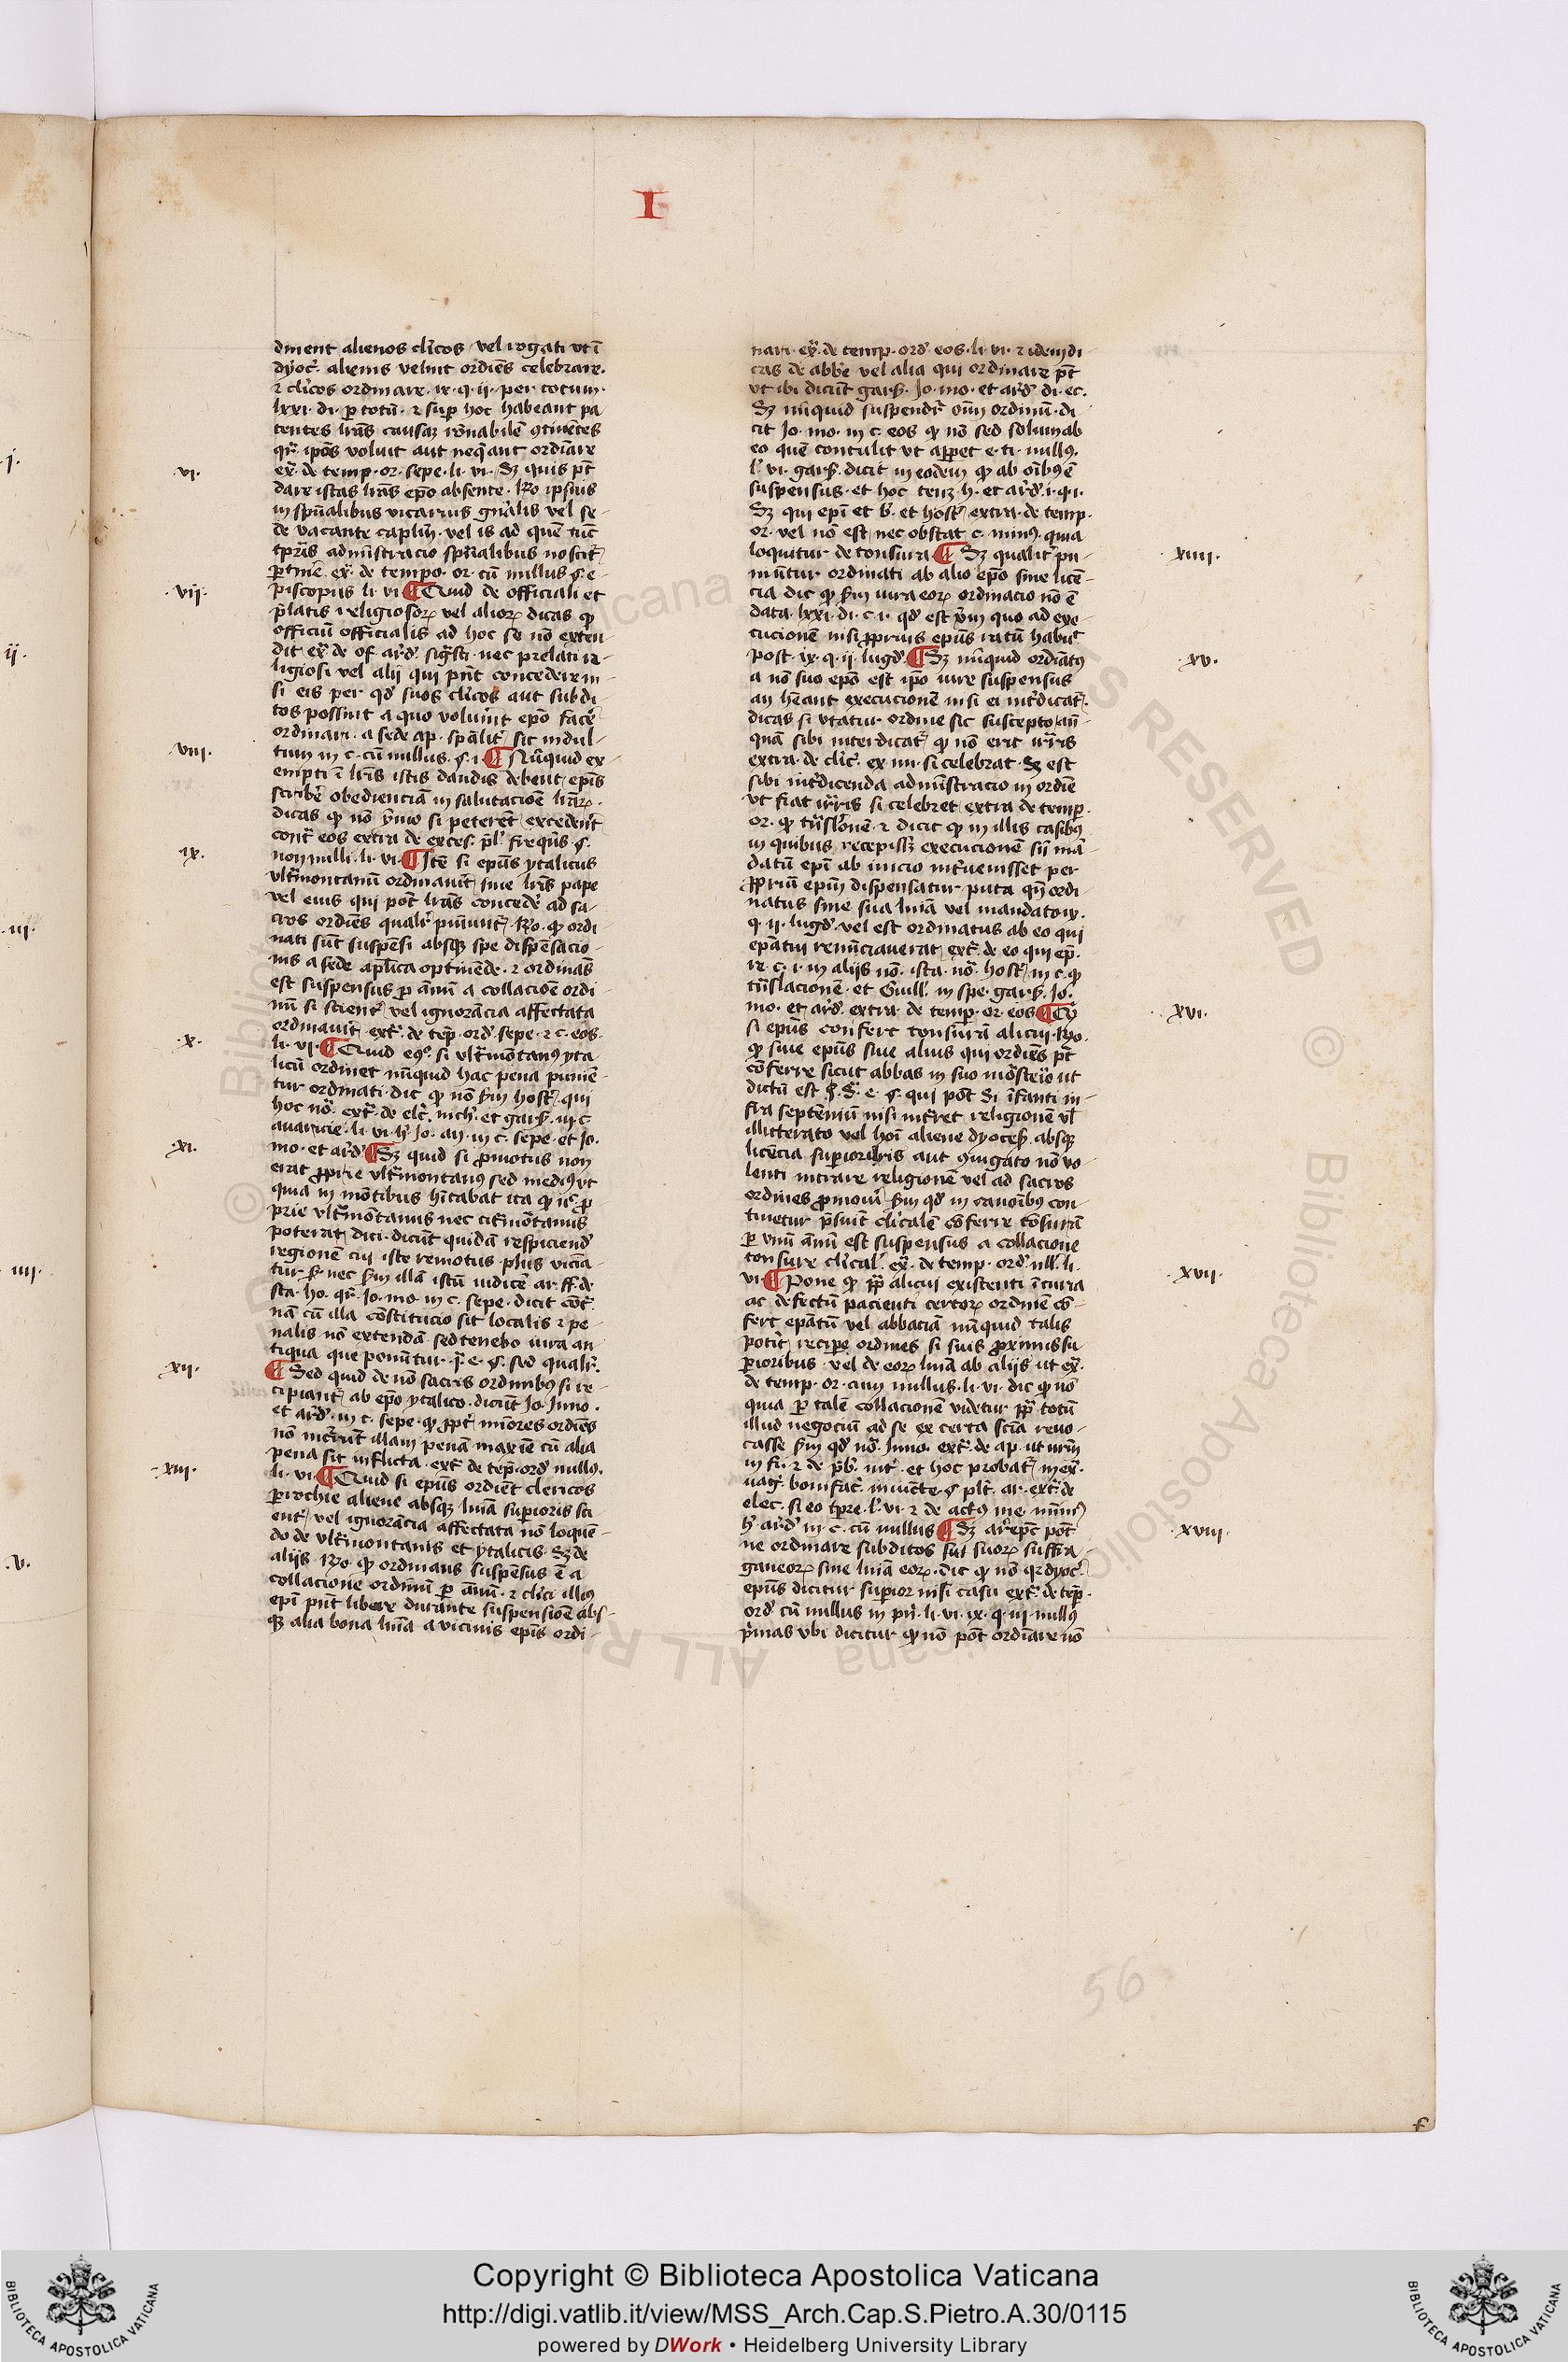 I
dinent alienos cl'icos vel rogati vt ī
dyoc̄. alienis velint ordīes celebrare.
⁊ cl'icos ordinare. ix. q. ii. per totum.
lxxi. di. p̱ totū. ⁊ sup̱ hoc habeant pa
tentes lr̄as causaꝫ rōnabilē ꝯtinētes
qr̄. ip̄os voluit aut neq̄ant ordīare
ex̄. de temp. or. sepe. li. vi. Sꝫ quis pt̄
dare istas lr̄as ep̄o absente. Ro ipsius
in spūalibus vicarius gn̄alis vel se-
de vacante cap̄lm̄. vel is ad quē tūc
tp̄ris administracio spūalibus noscit̄
p̱tinē. ex̄. de tempo. or. cū nullus. §. e-
piscopus li. vi. ¶ Quid de officiali et
p̄latis religiosoꝝ vel alioꝝ dicas ꝙ
officiū officialis ad hoc se nō exten
dit ex̄. de of. ard'. sigfsti. nec prelati re-
ligiosi vel alij qui pn̄t concedere ni-
si eis per qd' suos cl'icos aut subdi-
tos possint a quo voluīnt ep̄o facē
ordinari. a sede ap. spāliť sic indul-
tum in c. cū nullus. §. i. ¶ Nūquid ex
empti ī lr̄is istis dandis debent ep̄is
scribē obedienciā in salutacōe lr̄aꝝ.
dicas ꝙ nō ȳmo si peterēt excederēt
contr̄ eos extra de exces. p̄l'. freqn̄s. §.
non nulli. li. vi. ¶ Itē si ep̄us ytalicus
vlt̄montanū ordinauīt sine lr̄is pape
vel eius qui pōt lr̄as concedē ad sa-
cros ordīes qualiť puniunt̄. Ro. ꝙ ordi
nati sūt suspēsi absqꝫ spe dispēsacio-
nis a sede ap̄lica optinēde. ⁊ ordinās
est suspensus p̱ ānū a collacōe ordi-
nū si scienť vel ignorācia affectata
ordinauīt. ext̄. de tēp. ord. sepe. ⁊ c. eos.
li. vi. ¶ Quid eqͦ. si vlt̄mōtanꝰ yta
licū ordinet nūquid hac pena puniē-
tur ordinati. dic ꝙ nō s̄m host̄. qui
hoc nō. ext̄. de elc̄. nich'. et gars̄. in c.
auaricie. li. vi. h' Jo. an. in c. sepe. et Jo.
mo. et ard'. ¶ Sꝫ quid si p̱motus non
erat p̱prie vlt̄montanꝰ sed mediꝰ vt
quia in mōtibus hītabat ita ꝙ nͨ p̱-
prie vlt̄mōtanus nec cit̄mōtanus
poterat dici. dicūt quidā respiciend'
regionē cui iste remotus plus viciā-
tur s̄. nec s̄m illā istū iudicē ar. ff. de
sta. ho. qr̄. Jo. mo. in c. sepe. dicit cōt̄.
nā cū illa cōstitucio sit localis ⁊ pe-
nalis nō extendā sed tenebo iura an-
tiqua que ponūtur. j̄. e. §. sed qualiť.
¶ Sed quid de nō sacris ordinibꝰ si re-
cipiant̄ ab ep̄o ytalico. dicūt Jo. Inno.
et ard'. in c. sepe. ꝙ p̱pť minores ordīes
nō incurrūt illam penā maxīe cū alia
pena sit inflicta. ext̄. de tēp. ord. nullꝰ.
li. vi. ¶ Quid si ep̄us ordiēt clericos
p̱rochie aliene absqꝫ līnia superioris sci
enť vel ignorācia affectata nō loquē-
do de vlt̄montanis et ytalicis. Sꝫ de
alijs. Ro. ꝙ ordinans suspēsus ē a
collacione ordinū p̱ ānū. ⁊ cl'ici illiꝰ
ep̄i pn̄t libere durante suspensiōe abs-
qꝫ alia bona līnia a vicinis ep̄is ordi-
nari. ex̄. de temp. ord. eos. li. vi. ⁊ idem di-
cas de abbe vel alia qui ordinare pt̄
vt ibi dicūt gars̄. Jo. mo. et ard'. di. ec.
Sꝫ nūquid suspendit̄ oīm ordinū. di-
cit Jo. mo. in c. eos ꝙ nō sed solum ab
eo quē contulit vt apparet e. ti. nullꝰ.
l'. vi. gars̄. dicit in eodem ꝙ ab oībꝰ ē
suspensus. et hoc tenꝫ h. et ard'. i. q. i.
Sꝫ qui ep̄i et b'. et host̄. extra. de temp.
or. vel nō est nec obstat c. nimꝰ. quia
loquitur de tonsura. ¶ Sꝫ qualiť pu-
niūtur ordinati ab alio ep̄o sine licē-
cia dic ꝙ s̄m iura eoꝝ ordinacio nō ē
data. lxxi. di. c. i. qd' est v̄m quo ad exe-
cucionē nisi p̱prius ep̄us ratū habuīt
post. ix. q. ii. lugd'. ¶ Sꝫ nūquid ordiātꝰ
a nō suo ep̄o est ip̄o iure suspensus
an hēant execucionē nisi ei int̄dicat̄.
dicas si vtatur ordine sic suscepto an̄-
quā sibi interdicat̄ ꝙ nō erit irr̄is
extra. de cl'ic̄. ex. mi. si celebrat. Sꝫ est
sibi int̄dicenda administracio in ordiē
vt fiat irr̄is si celebret extra. de temp.
or. ꝙ tn̄sl'onē. ⁊ dicit ꝙ in illis casibꝰ
in quibus recepissꝫ execucionē si mā-
datū ep̄i ab inicio int̄uenisset per
p̱priū ep̄m dispensatur puta qn̄ ordi
natus sine sua līnia vel mandato ix.
q. ii. lugd'. vel est ordinatus ab eo qui
ep̄atui renūciauerat ext̄. de eo qui ep̄.
re. c. i. in alijs nō. ista. nō. host̄. in c. ꝙ
tn̄slacionē. et Guill'. in spe. gars̄. Jo.
mo. et ard'. extra. de temp. or. eos ¶ Qꝫ
si ep̄us confert tonsurā alicui. Ro.
ꝙ siue ep̄us siue alius qui ordīes pt̄
cōferre sicut abbas in suo mōsteīo ut
dictū est §. s̄. e. §. qui pōt. Si īfanti in-
fra septēniū nisi intret religionē vl'
illitterato vel hoī aliene dyoces̄. absqꝫ
licēcia superioris aut ꝯiugato nō vo-
lenti intrare religionē vel ad sacros
ordines p̱moui s̄m qd' in canoībꝰ con-
tinetur p̄sūit cl'icalē cōferre tōsurā
p̱ vnū ānū est suspensus a collacione
tonsure cl'ical'. ex̄. de temp. ord. null'. li.
vi. ¶ Pone ꝙ p̄p̄ alicui existenti ī cura
ac defectū pacienti certoꝝ ordinē cō-
fert ep̄atū vel abbaciā nūquid talis
poťit recipe ordines si suis p̱ximis su-
p̱ioribus. vel de eoꝝ līnia ab alijs ut ex̄.
de temp. or. cum nullus. li. vi. dic ꝙ nō
quia p̱ talē collacionē videtur p̄p̄ totū
illud negociū ad se ex certa sciā reuo-
casse s̄m qd' nō. Inno. ext̄. de ap. ut nr̄m
in fi. ⁊ de p̄b'. int̄. et hoc probat̄ in ex̄.
uag. bonifac̄. iniūcte. §. plr̄. ar. ext̄. de
elec. si eo tp̄re. l'. vi. ⁊ de actꝰ
h' ard'. in c. cū nullus ¶ Sꝫ ar̄ep̄c pōt
ne ordinare subditos sui suoꝝ suffra-
ganeoꝝ sine līnia eoꝝ. Dic ꝙ nō qr dyoc̄.
ep̄us dicitur superior nisi casu ext̄. de tēp.
ord. cū nullus in pn̄. li. vi. ix. q. iii. nullꝰ
p̄mas vbi dicitur ꝙ nō pōt ordīare nō
.vi.
.vii.
.viii.
.ix.
.x.
.xi.
.xii.
.xiii.
.xiiii.
.xv.
.xvi.
.xvii.
.xviii.
.j.
.ii.
.iii.
.iiii.
.v.
56
Copyright © Biblioteca Apostolica Vaticana
http://digi.vatlib.it/view/MSS_Arch.Cap.S.Pietro.A.30/0115
powered by DWork • Heidelberg University Library
BIBLIOTECA APOSTOLICA VATICANA
BIBLIOTECA APOSTOLICA VATICANA